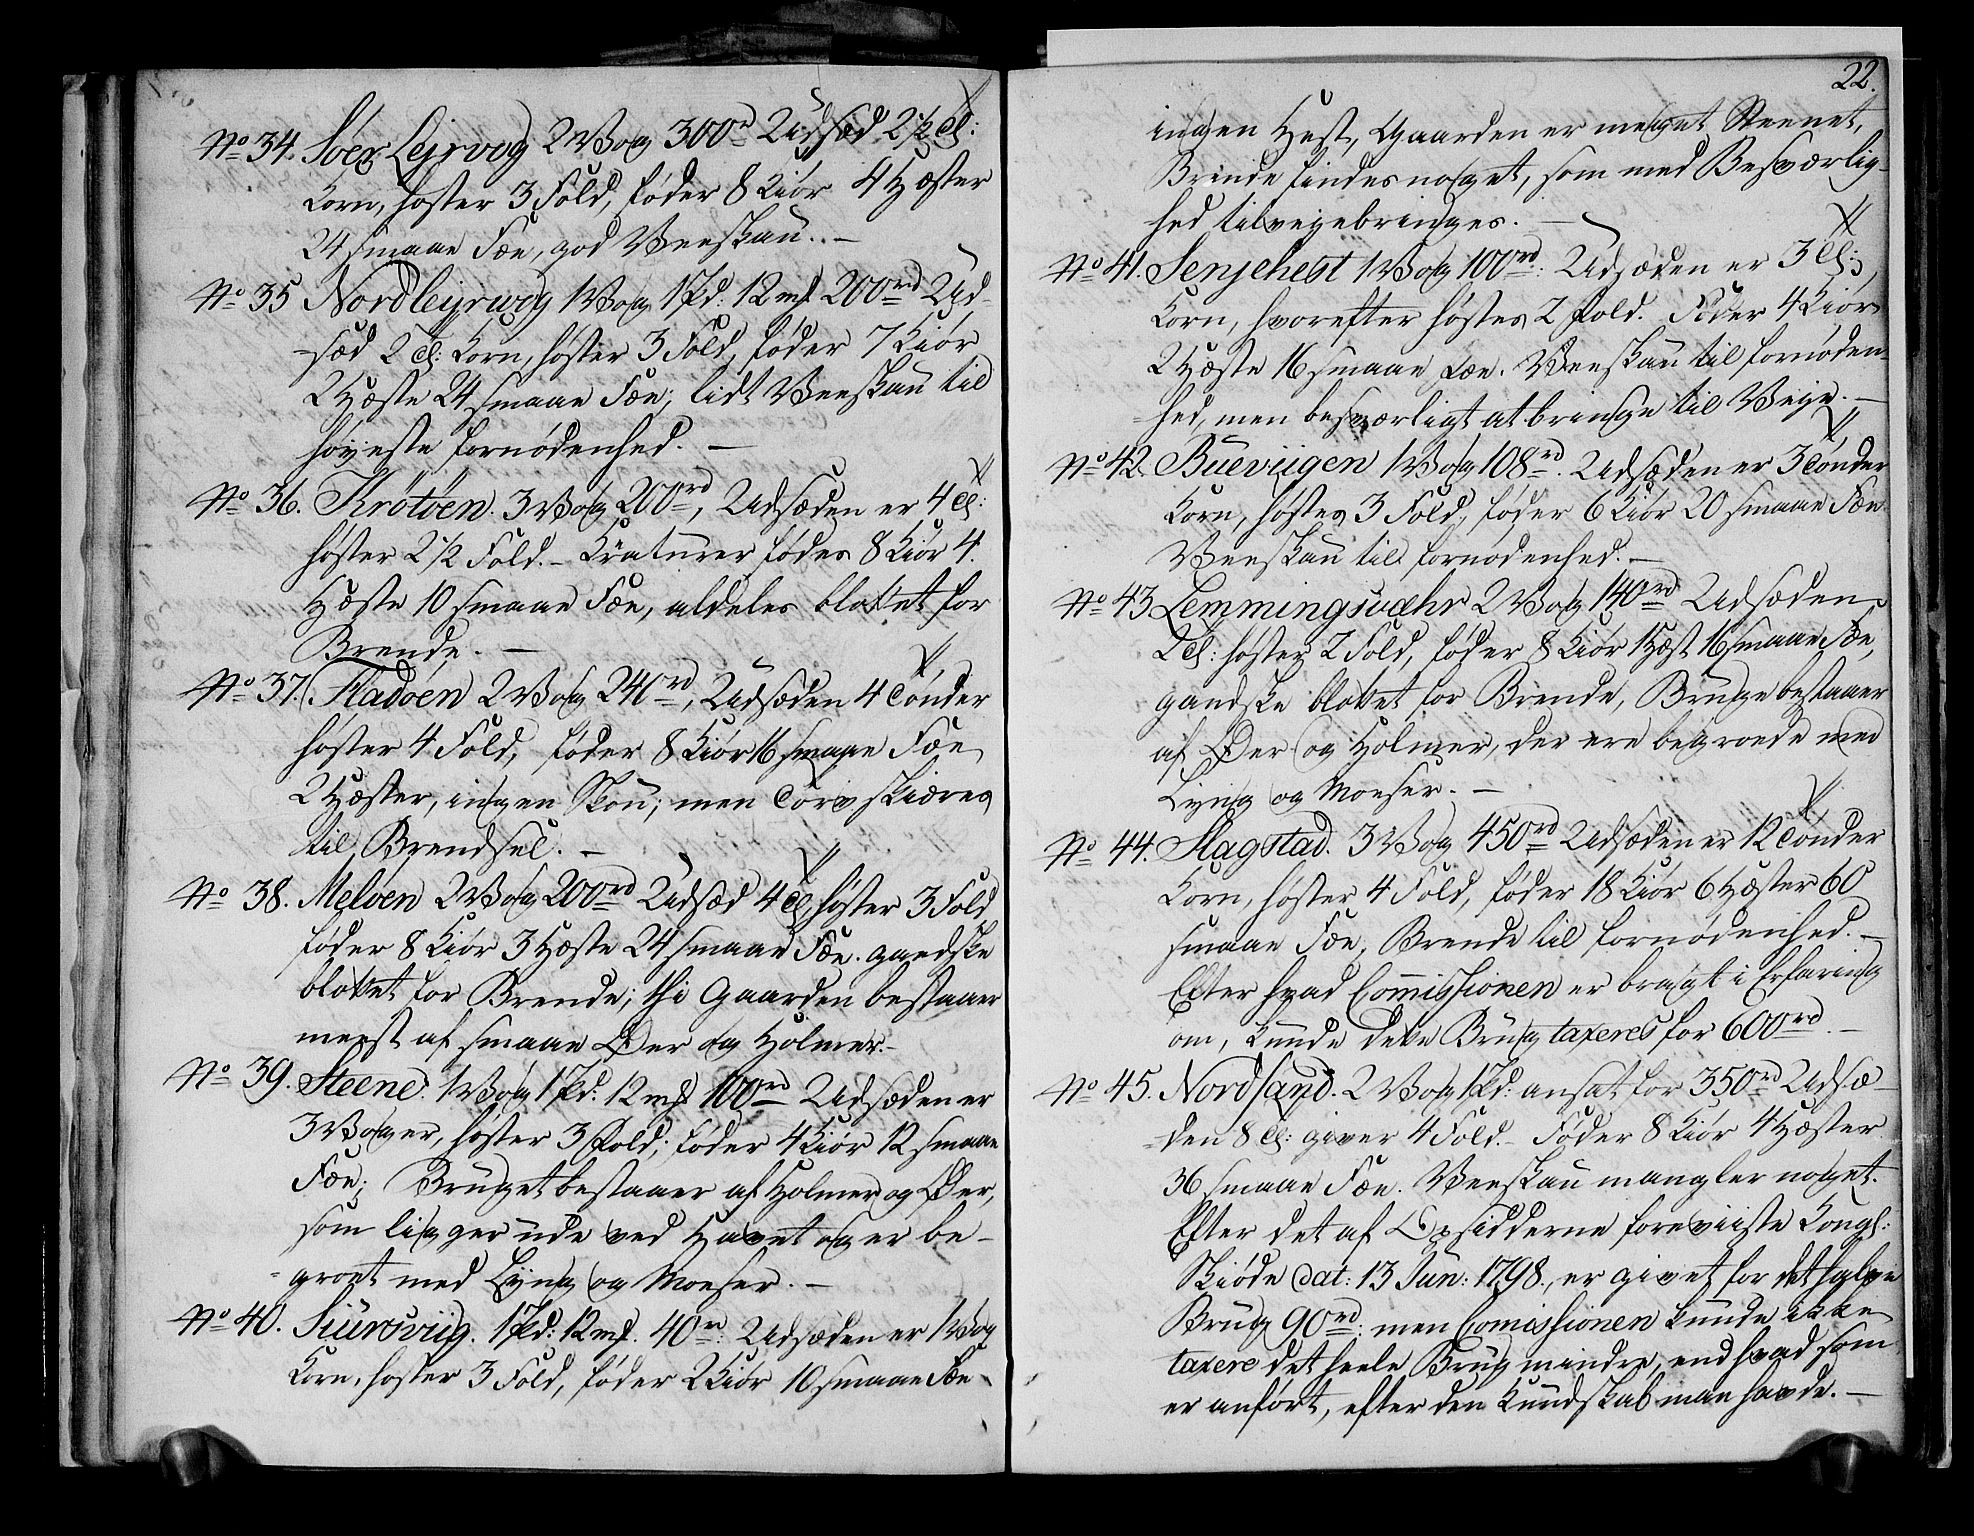 No 34. Söer Lejrvog 2 Vog 300rd Udsæd 2 1/2 Td:
Korn, høster 3 Fold, føder 8 Kiör 4 Hæster
24 smaae Fæe, god Veeskau. –
No 35 Nordlejrwog 1 Vog 1 Pd: 12 mk 200rd Ud-
-sæd 2 Td: Korn, høster 3 Fold, føder 7 Kiör
2 Hæste 24 smaae Fæe; lidt Veeskau til
høyeste fornødenhed. –
No 36. Krötöen. 3 Vog 200rd, Udsæden er 4 Td:
høster 2 1/2 Fold. – Creaturer fødes 8 Kiör 4
Hæste 10 smaae Fæe, aldeles blottet for
Brende. –
No 37. Fladöen 2 Vog 240rd, Udsæden 4 Tönder
høster 4 Fold, føder 8 Kiör 16 smaae Fæe
2 Hæster, ingen Skou; men Törv skiæres
til Brendsel. –
No 38. Melöen 2 Vog 200rd Udsæd 4 Td, høster 3 Fold
føder 8 Kiör 3 Hæste 24 smaae Fæe. gandske
blottet for Brende; thi Gaarden bestaaer
meest af smaae Øer og Holmer. –
No 39. Steene. 1 Vog 1 Pd: 12 mk 100rd Udsæden er
3 Voger, høster 3 Fold; føder 4 Kiör 12 smaae
Fæe; Bruget bestaaer af Holmer og Øer,
som ligger ude ved Havet og er be-
-groet med Lyng og Moeser. –
No 40. Siursviig. 1 Pd: 12 mk. 40rd: Udsæden er 1 Vog
Korn, høster 3 Fold, føder 2 Kiör 10 smaae Fæe
22.
ingen Hest, Gaarden er meget Steenet,
Brende findes noget, som med Besværlig-
hed tilvejebringes. –
No 41. Senjehest 1 Vog 100rd: Udsæden er 3 Td:
Korn, hvorefter høstes 2 Fold. Föder 4 Kiör
2 Hæste 16 smaae Fæe. Veeskau til fornøden-
-hed, men besværligt at bringe til Veye. –
No 42. Bueviigen 1 Vog 108rd. Udsæden er 3 Tönder
Korn, høstes 3 Fold, føder 6 Kiör 20 smaae Fæe
Veeskau til fornödenhed. –
No 43 Lemmingsvæhr 2 Vog 140rd Udsæden
2 Td: høster 2 Fold, føder 8 Kiör 1 Hæst 16 smaae Fæe,
gandske blottet for Brende, Bruge bestaaer
af Øer og Holmer, der ere begroede med
Lyng og Moeser. –
No 44. Slagstad. 3 Vog 450rd Udsæden er 12 Tönder
Korn, høster 4 Fold, føder 18 Kiör 6 Hæster 60
smaae Fæe, Brende til fornødenhed. –
Efter hvad Commissionen er bragt i Erfaring
om, kunde dette Brug taxeres for 600rd. –
No 45. Nordsand. 2 Vog 1 Pd: ansat for 350rd Udsæ-
-den 8 Td: giver 4 Fold. – Føder 8 Kiör 4 Hæster
36 smaae Fæe. Veeskau mangler noget.
Efter det af Opsidderne foreviiste Kongl:
Skiøde dat: 13 Jun: 1798., er givet for det halve
Brug 90rd: men Comissionen kunde ikke
taxere det heele Brug mindre, end hvad som
er anført, efter den Kundskab man havde. –